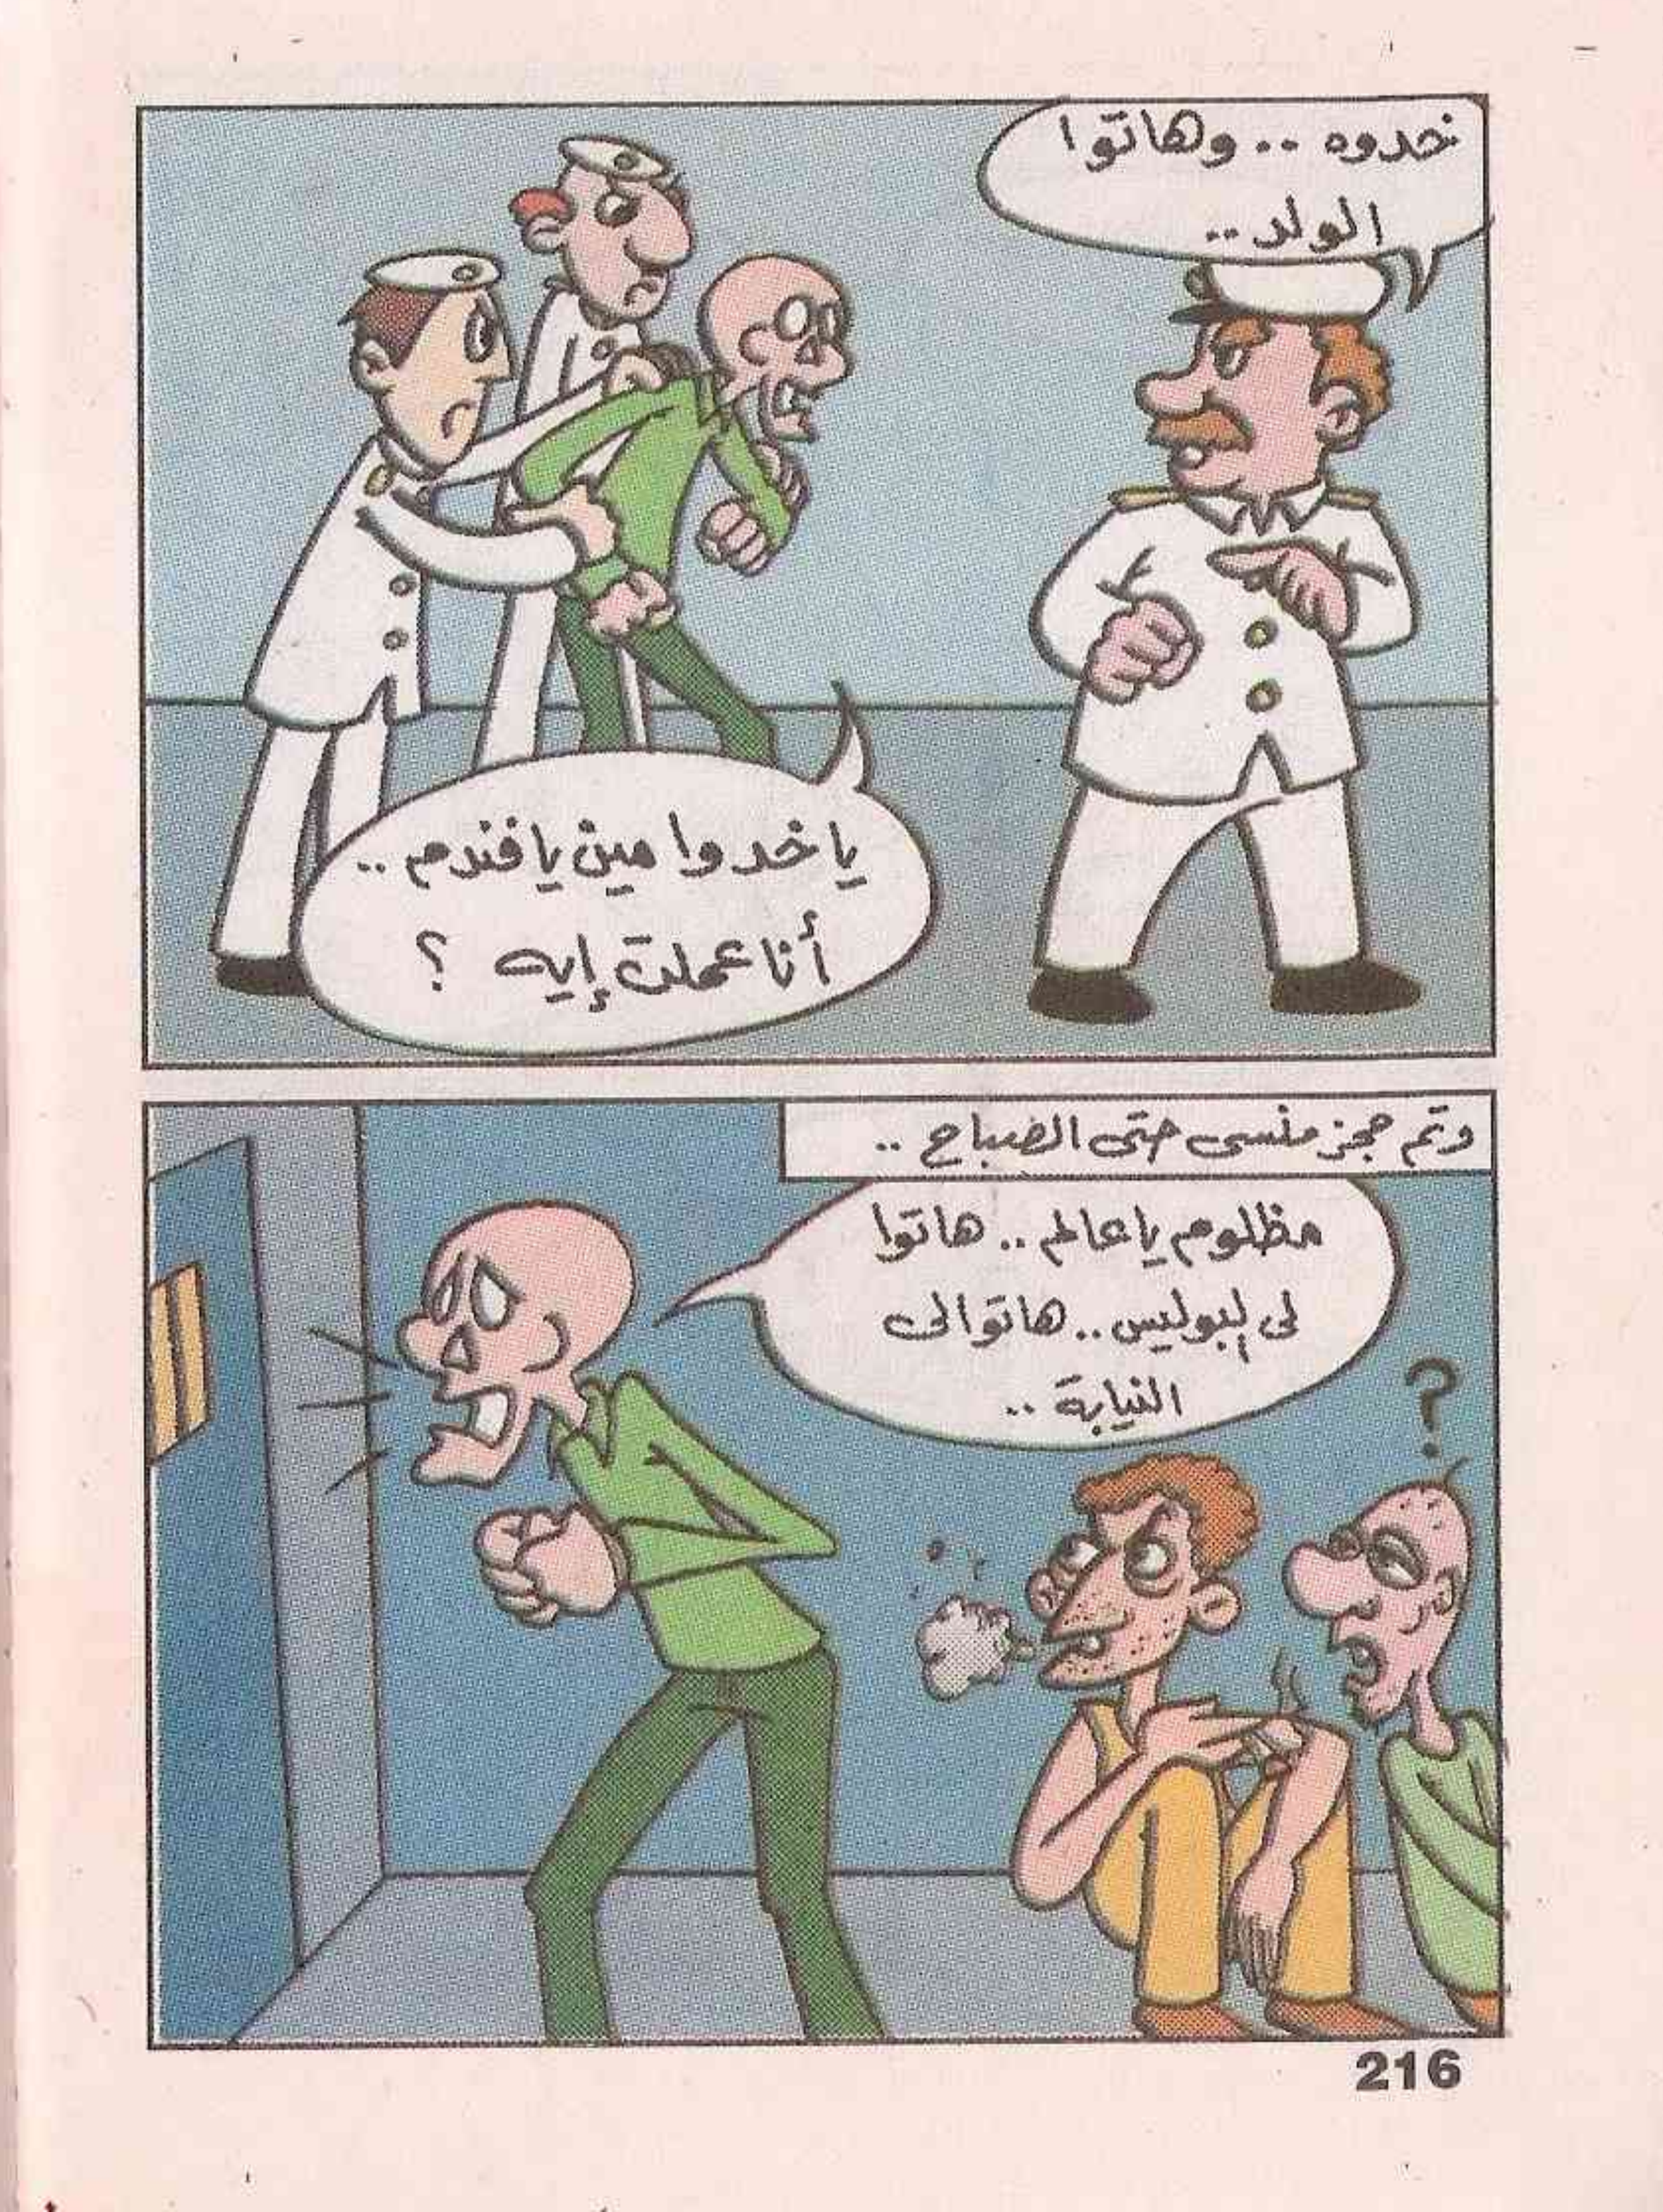 خدوه .. وهاتوا
الولد ..
يا خدوا مين يا فندم ..
أنا عملت إيه ؟
وتم حجز منسى حتى الصباح ..
مظلوم يا عالم .. هاتوا
لى لبوليس .. هاتوا لى
النيابة ..
?
216